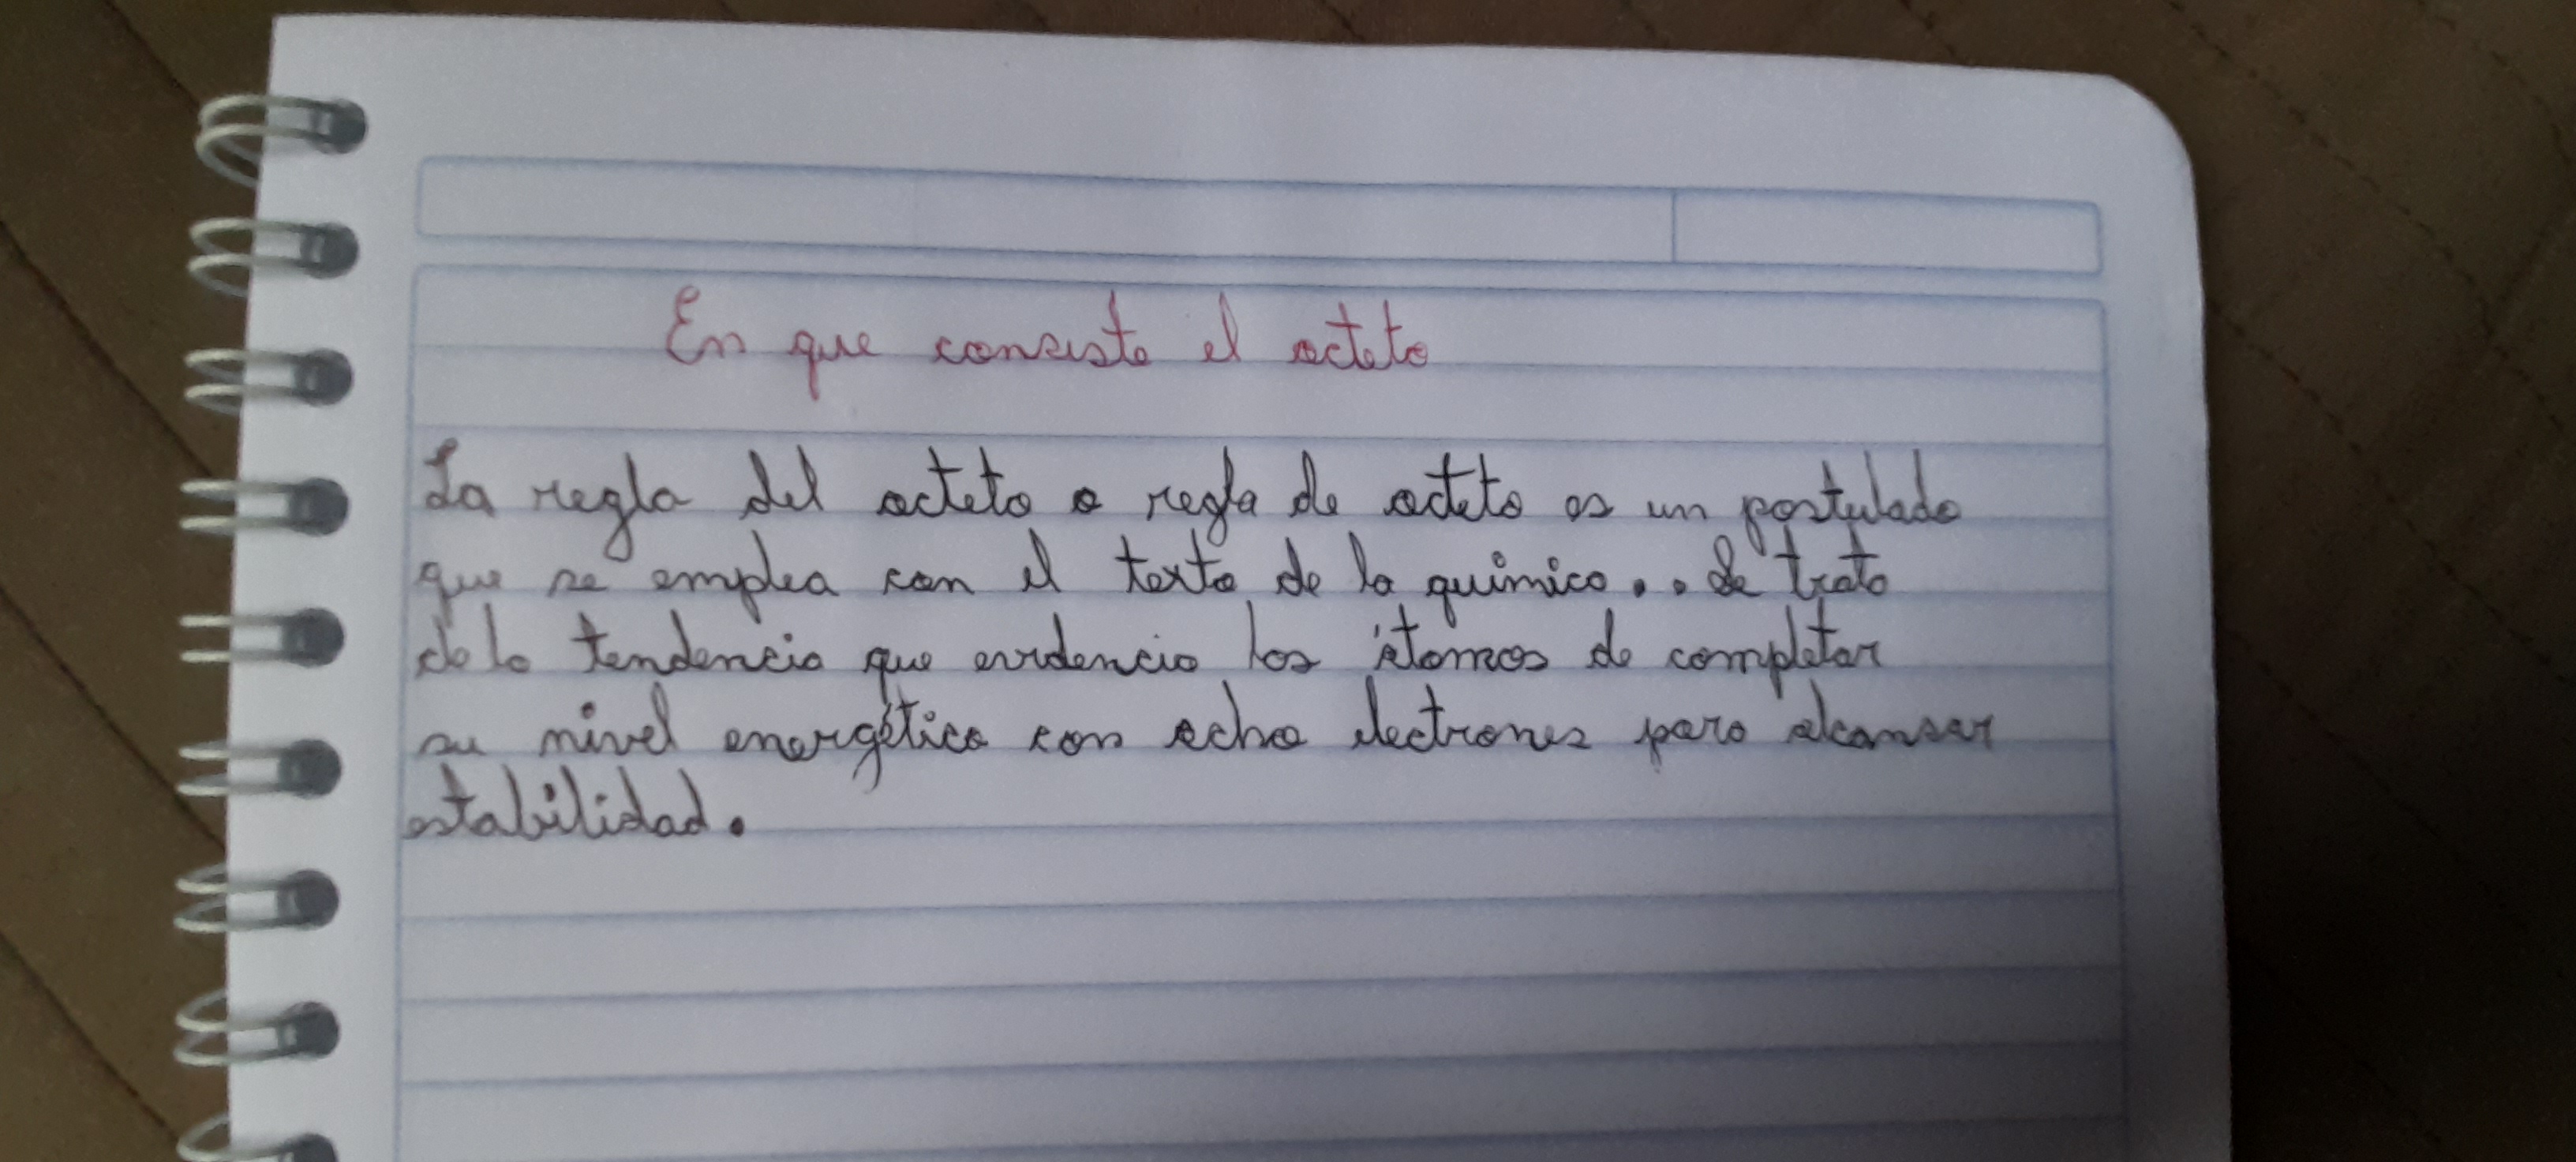 En que consiste el octeto
La regla del octeto o regla de octeto es un postulado
que se emplea con el texto de la química.. de trata
de la tendencia que evidencia los átomos de completar
su nivel energético con ocho electrones para alcansar
estabilidad.